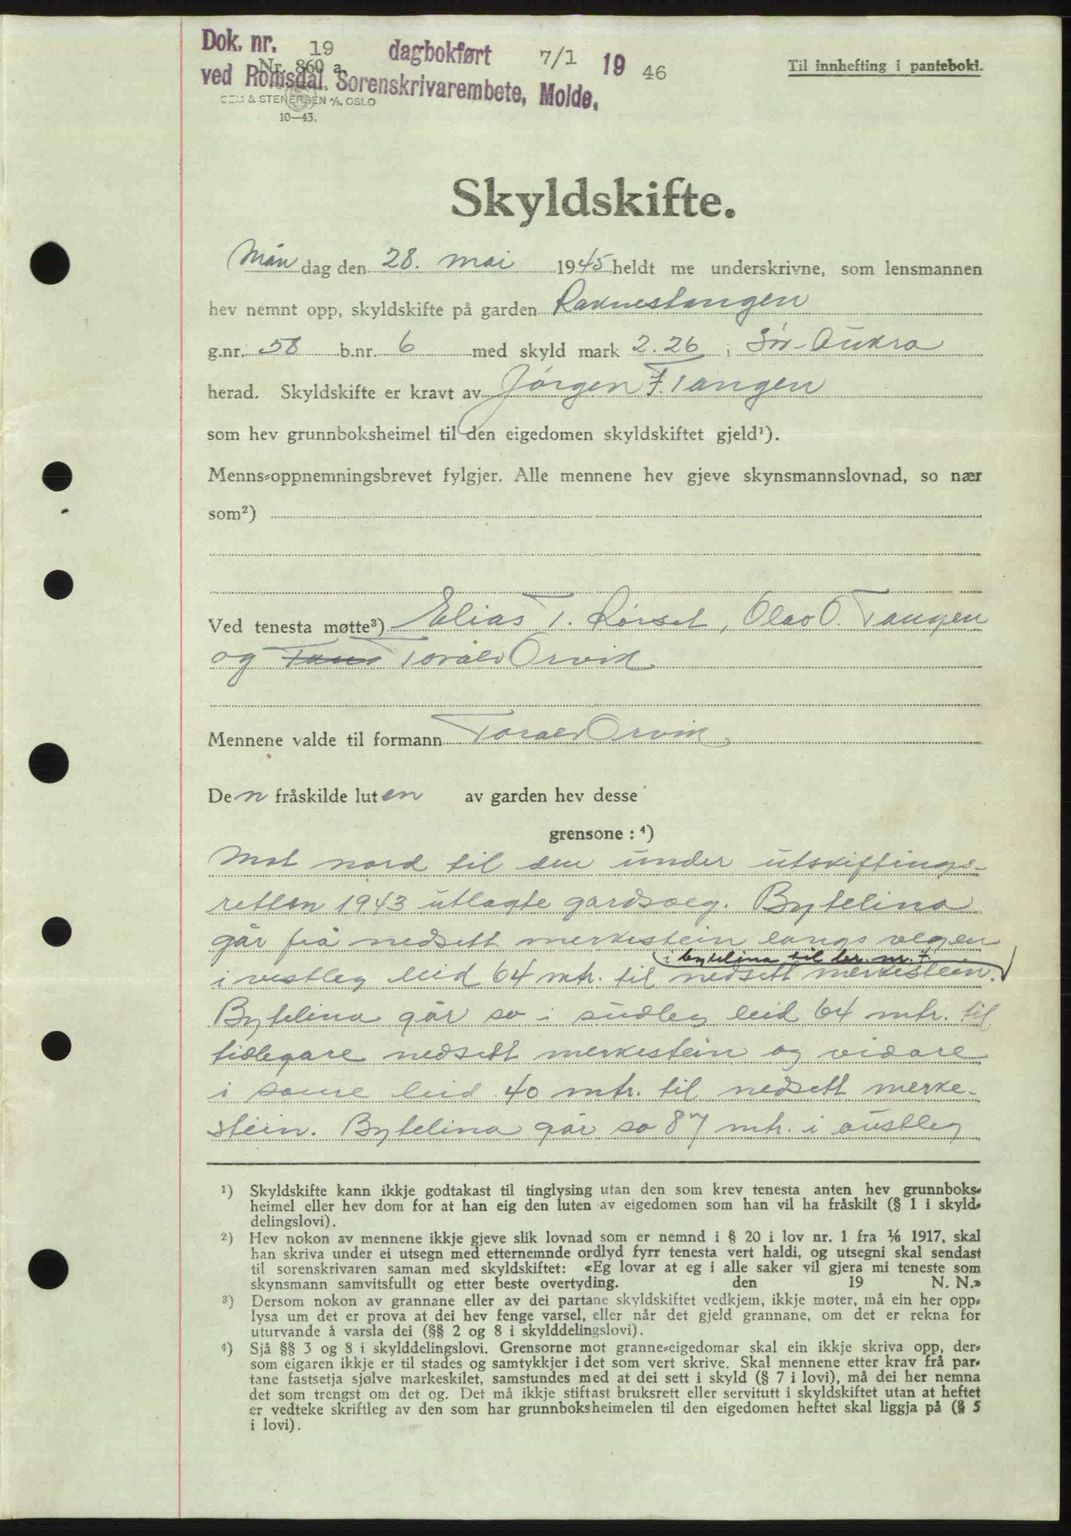 Dok. nr. 19 dagbokført 7/1 19 46
Nr. 860 a. Til innhefting i pantebok.
ved Romsdal Sorenskrivarembete, Molde.
SEM & STENERSEN A/S, OSLO
10—43.
Skyldskifte.
Mån dag den 28. mai 1945 heldt me underskrivne, som lensmannen
hev nemnt opp, skyldskifte på garden Raknestangen
g.nr. 58 b.nr. 6 med skyld mark 2.26 i Sør-Aukra
herad. Skyldskifte er kravt av Jørgen F. Tangen
som hev grunnboksheimel til den eigedomen skyldskiftet gjeld¹).
Menns-oppnemningsbrevet fylgjer. Alle mennene hev gjeve skynsmannslovnad, so nær
som²)
Ved tenesta møtte³) Elias T. Rørset, Olav O. Tangen
og Torald Orvik
Mennene valde til formann Torald Orvik
Den fråskilde luten av garden hev desse
grensone : ⁴)
Mot nord til den under utskiftings-
retten 1943 utlagte gardsveg. Bytelina
går frå nedsett merkestein langs vegen
i bytelina til br. nr. 7.
i vestleg leid 64 mtr. til nedsett merkestein.
Bytelina går so i sudleg leid 64 mtr. til
tidlegare nedsett merkestein og vidare
i same leid 40 mtr. til nedsett merke-
stein. Bytelina går so 87 mtr. i austleg
¹) Skyldskifte kann ikkje godtakast til tinglysing utan den som krev tenesta anten hev grunnboks-
heimel eller hev dom for at han eig den luten av eigedomen som han vil ha fråskilt (§ 1 i skyld-
delingslovi).
²) Hev nokon av mennene ikkje gjeve slik lovnad som er nemnd i § 20 i lov nr. 1 fra 1/6 1917, skal
han skriva under ei utsegn med etternemnde ordlyd fyrr tenesta vert haldi, og utsegni skal sendast
til sorenskrivaren saman med skyldskiftet: «Eg lovar at eg i alle saker vil gjera mi teneste som
skynsmann samvitsfullt og etter beste overtyding. den 19 N. N.»
³) Dersom nokon av grannane eller av dei partane skyldskiftet vedkjem, ikkje møter, må ein her opp-
lysa um det er prova at dei hev fenge varsel, eller når det gjeld grannane, om det er rekna for
uturvande å varsla dei (§§ 2 og 8 i skylddelingslovi).
⁴) Sjå §§ 3 og 8 i skylddelingslovi. Grensorne mot granne-eigedomar skal ein ikkje skriva opp, der-
som eigaren ikkje er til stades og samtykkjer i det som vert skrive. Skal mennene etter krav frå par-
tane fastsetja sjølve markeskilet, samstundes med at dei sett i skyld (§ 7 i lovi), må dei her nemna
det som trengst om det og. Det må ikkje stiftast bruksrett eller servitutt i skyldskiftet utan at heftet
er vedteke skriftleg av den som har grunnboksheimelen til den eigedomen heftet skal liggja på (§ 5
i lovi).